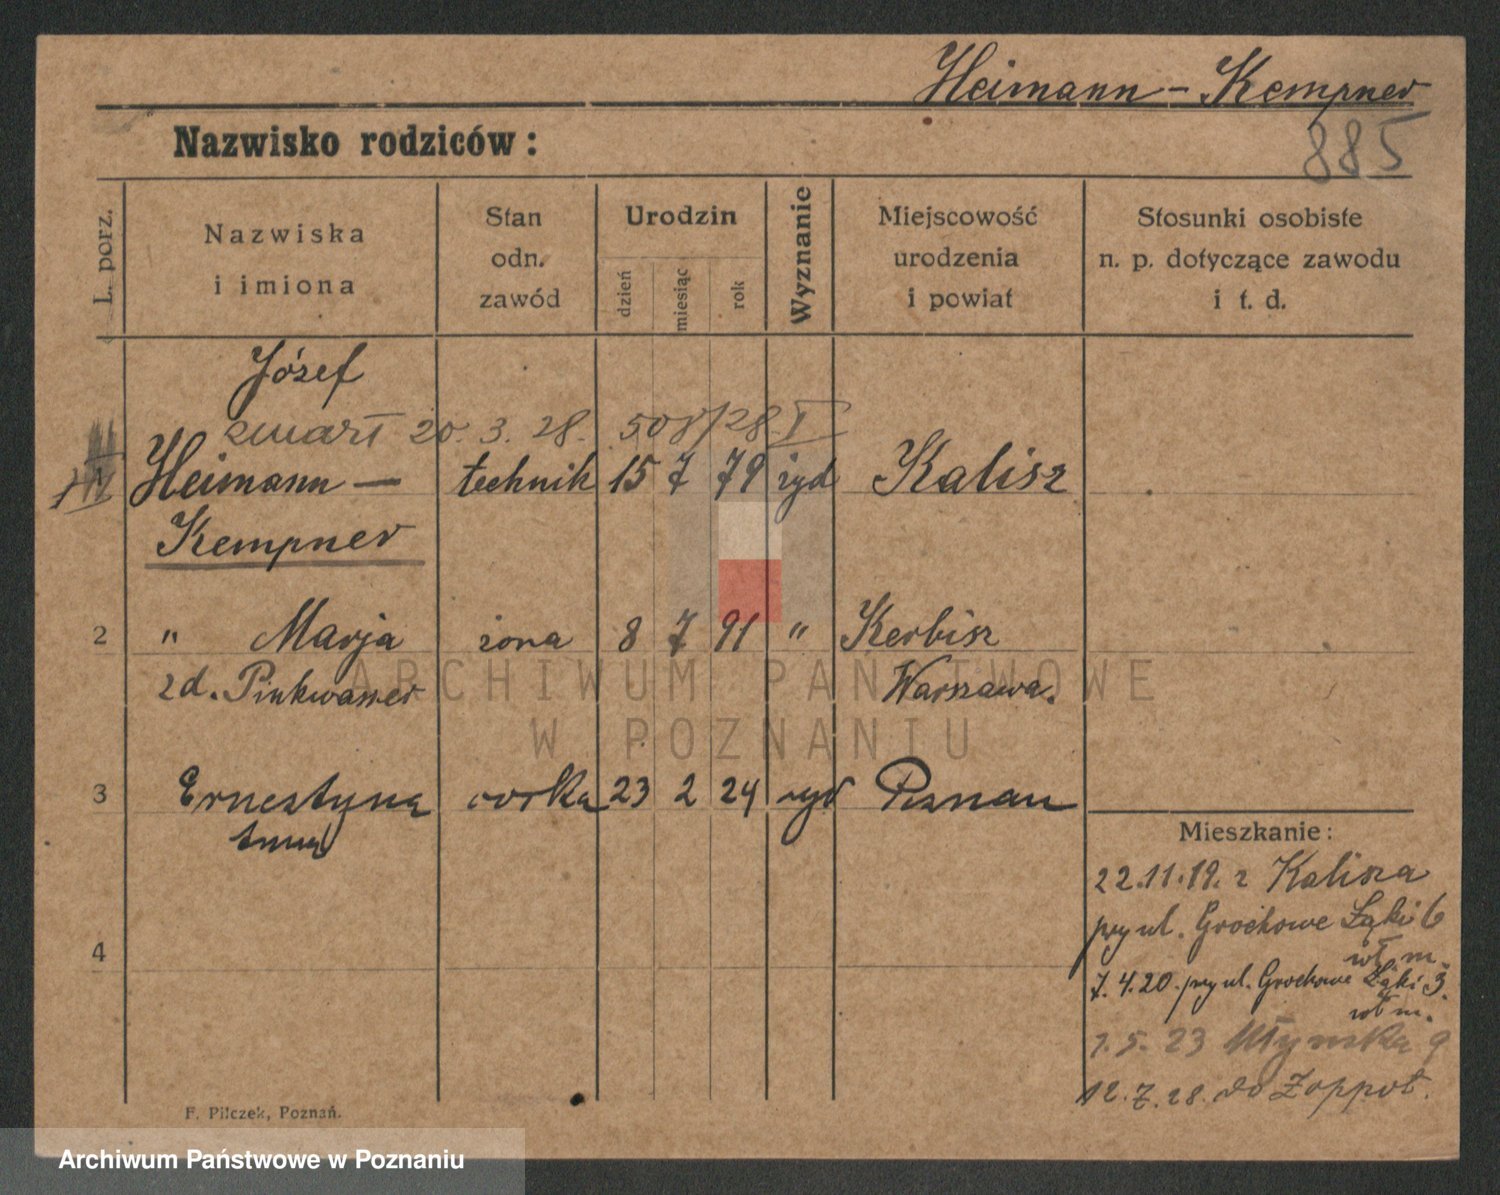 Heimann – Kempner
885
Nazwisko rodziców :
L. porz.
Nazwiska
i imiona
Stan
odn.
zawód
Urodzin
dzień
miesiąc
rok
Wyznanie
Miejscowość
urodzenia
i powiat
Stosunki osobiste
n. p. dotyczące zawodu
i t. d.
Józef
zmarł 20. 3. 28. 508/28 I
Heimann – technik 15 7 79 żyd Kalisz
Kempner
2 " Marja żona 8 7 91 " Kerbisz
zd. Pinkwasser Warszawa.
ARCHIWUM PAŃSTWOWE
W POZNANIU
3 Ernestyna córka 23 2 24 żyd Poznań
Mieszkanie:
22.11.19. z Kalisza
przy ul. Grochowe Łąki 6
wł m.
4
7.4.20. przy ul. Grochowe Łąki 3.
wł m.
1.5.23 Młyńska 9
12.7.28. do Zoppot.
F. Pilczek, Poznań.
Archiwum Państwowe w Poznaniu